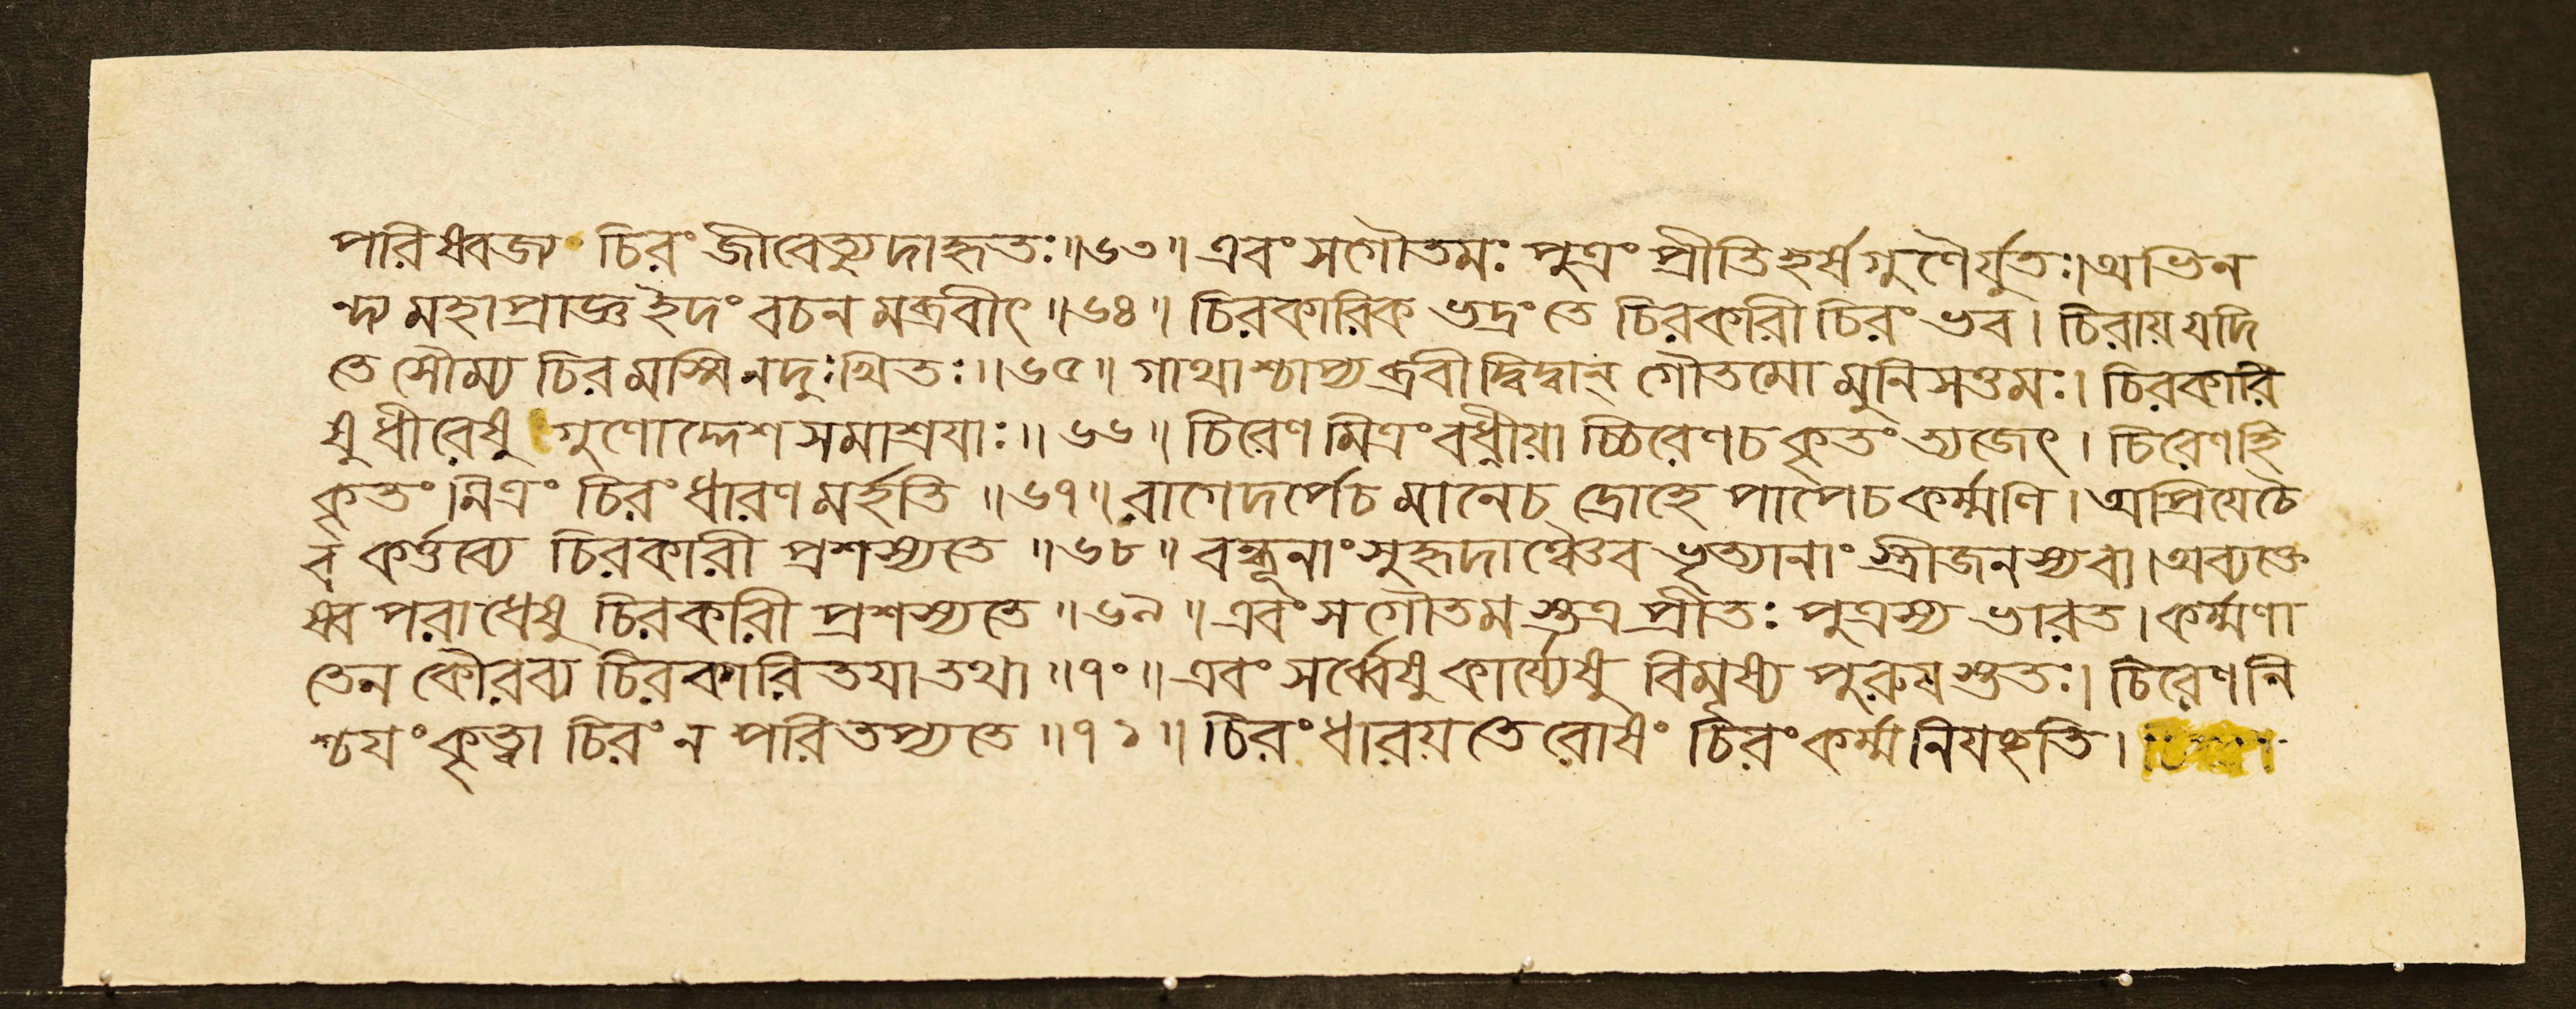 পরিষ্বজ্য চিরং জীবেত্যুদাহৃতঃ॥৬৩॥ এবং সগৌতমঃ পুত্রং প্রীতিহর্ষগুণৈর্যুতঃ।অভিন
ন্দ্য মহাপ্রাজ্ঞ ইদং বচন মব্রবীৎ॥৬৪॥ চিরকারিক ভদ্রং তে চিরকারী চিরং ভব। চিরায় যদি
তে সৌম্য চিরমস্মি নদুঃখিতঃ॥৬৫॥ গাথাশ্চাপ্যব্রবীদ্বিদ্বান্ গৌতমো মুনিসত্তমঃ। চিরকারি
ষু ধীরেষু গুণোদ্দেশসমাশ্রয়াঃ॥৬৬॥ চিরেণ মিত্রং বধ্নীয়া চ্চিরেণচ কৃতং ত্যজেৎ। চিরেণহি
কৃতং মিত্রং চিরং ধারণ মর্হতি॥৬৭॥ রাগেদর্পেচ মানেচ দ্রোহে পাপেচ কর্ম্মণি। অপ্রিয়েচৈ
ব কর্ত্তব্যে চিরকারী প্রশস্যতে॥৬৮॥ বন্ধূনাং সুহৃদাঞ্চৈব ভৃত্যানাং স্ত্রীজনস্যবা।অব্যক্তে
ষ্বপরাধেষু চিরকারী প্রশস্যতে॥৬৯॥ এবং সগৌতম স্তত্র প্রীতঃ পুত্রস্য ভারত। কর্ম্মণা
তেন কৌরব্য চিরকারিতয়া তথা॥৭০॥ এবং সর্ব্বেষু কার্য্যেষু বিমৃষ্য পুরুষ স্ততঃ। চিরেণ নি
শ্চয়ং কৃত্বা চিরং ন পরিতপ্যতে॥৭১॥ চিরং ধারয়তে রোষং চিরং কর্ম্ম নিযচ্ছতি।